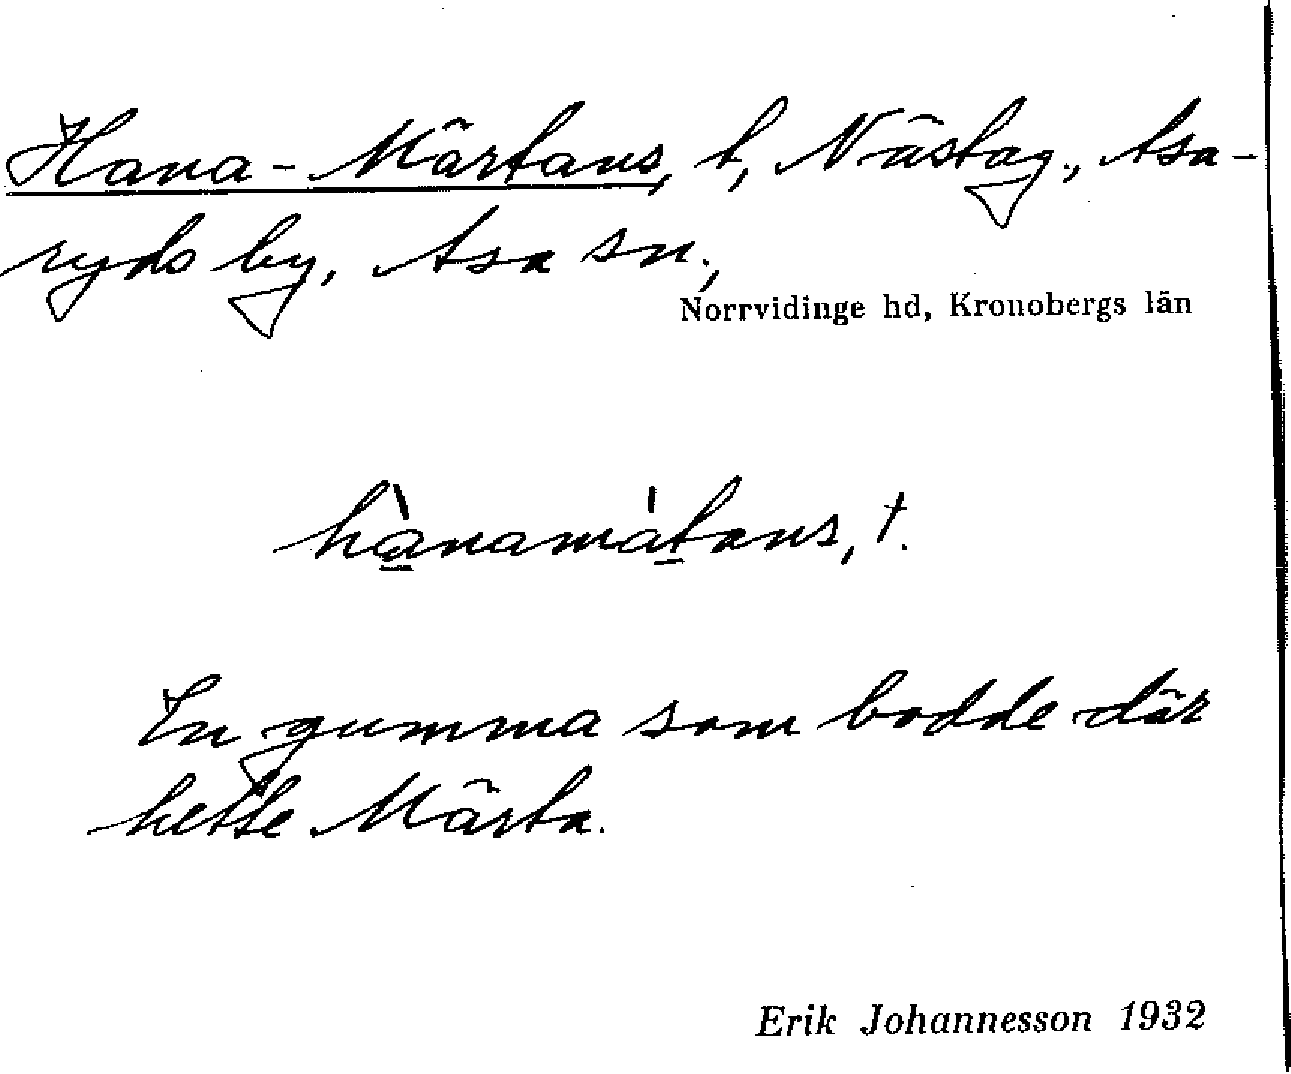 Hana-Märtans, t, Nästag., Asa-
ryds by, Asa sn.,
Norrvidinge hd, Kronobergs län
hànamátans, t.
En gumma som bodde där
hette Märta.
Erik Johannesson 1932